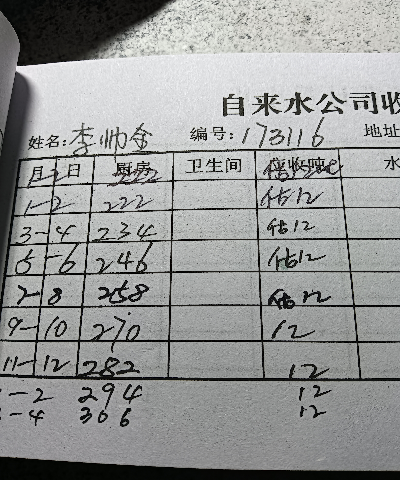 自来水公司收
姓名:李帅金 编号:173116 地址
月 日 厨房 卫生间 应收吨 水
1-2 222 估12
3-4 234 估12
5-6 246 估12
7-8 258 估12
9-10 270 12
11-12 282 12
-2 294 12
-4 306 12